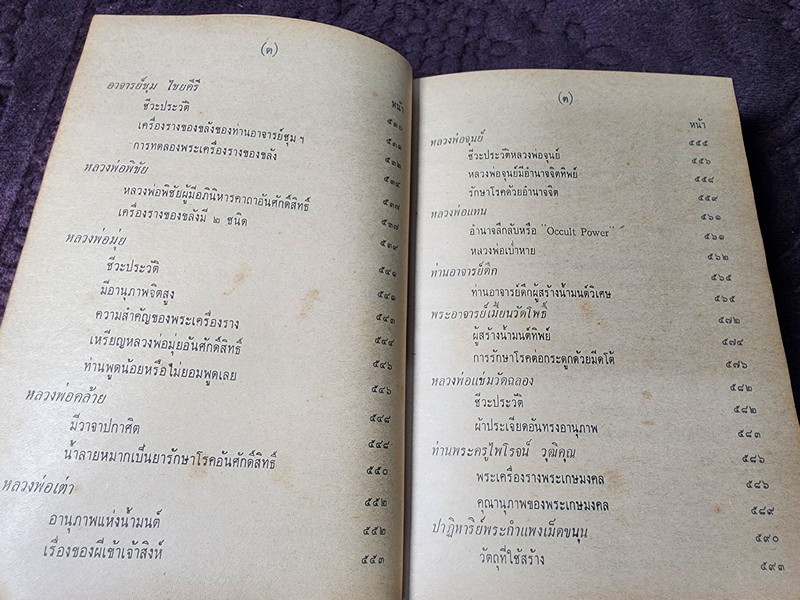 (ฅ)
อาจารย์ชุม ไชยคีรี
หน้า
ชีวะประวัติ ๕๓๐
เครื่องรางของขลังของท่านอาจารย์ชุม ฯ ๕๓๑
การทดลองพระเครื่องรางของขลัง ๕๓๒
หลวงพ่อพิชัย ๕๓๔
หลวงพ่อพิชัยผู้มีอภินิหารคาถาอันศักดิ์สิทธิ์ ๕๓๗
เครื่องรางของขลังมี ๒ ชนิด ๕๓๗
หลวงพ่อมุ่ย ๕๓๙
ชีวะประวัติ ๕๔๑
มีอานุภาพจิตสูง ๕๔๑
ความสำคัญของพระเครื่องราง ๕๔๓
เหรียญหลวงพ่อมุ่ยอันศักดิ์สิทธิ์ ๕๔๔
ท่านพูดน้อยหรือไม่ยอมพูดเลย ๕๔๖
หลวงพ่อคล้าย ๕๔๖
มีวาจาปกาศิต ๕๔๘
น้ำลายหมากเป็นยารักษาโรคอันศักดิ์สิทธิ์ ๕๔๘
๕๕๐
หลวงพ่อเต๋า ๕๕๒
อานุภาพแห่งน้ำมนต์ ๕๕๒
เรื่องของผีเข้าเจ้าสิงห์ ๕๕๓
(ฅ)
หน้า
หลวงพ่อจุนย์ ๕๕๕
ชีวะประวัติหลวงพ่อจุนย์ ๕๕๖
หลวงพ่อจุนย์มีอำนาจจิตทิพย์ ๕๕๘
รักษาโรคด้วยอำนาจจิต ๕๕๙
หลวงพ่อแทน ๕๖๑
อำนาจลึกลับหรือ "Occult Power" ๕๖๑
หลวงพ่อเป่าหาย ๕๖๒
ท่านอาจารย์ดึก ๕๖๕
ท่านอาจารย์ดึกผู้สร้างน้ำมนต์วิเศษ ๕๖๕
พระอาจารย์เมี้ยนวัดโพธิ์ ๕๗๒
ผู้สร้างน้ำมนต์ทิพย์ ๕๗๔
การรักษาโรคต่อกระดูกด้วยมีดโต้ ๕๗๖
หลวงพ่อแช่มวัดฉลอง ๕๘๒
ชีวะประวัติ ๕๘๒
ผ้าประเจียดอันทรงอานุภาพ ๕๘๓
ท่านพระครูไพโรจน์ วุฒิคุณ ๕๘๖
พระเครื่องรางพระเกษมงคล ๕๘๖
คุณานุภาพของพระเกษมงคล ๕๘๙
ปาฏิหาริย์พระกำแพงเม็ดขนุน ๕๙๐
วัตถุที่ใช้สร้าง ๕๙๓